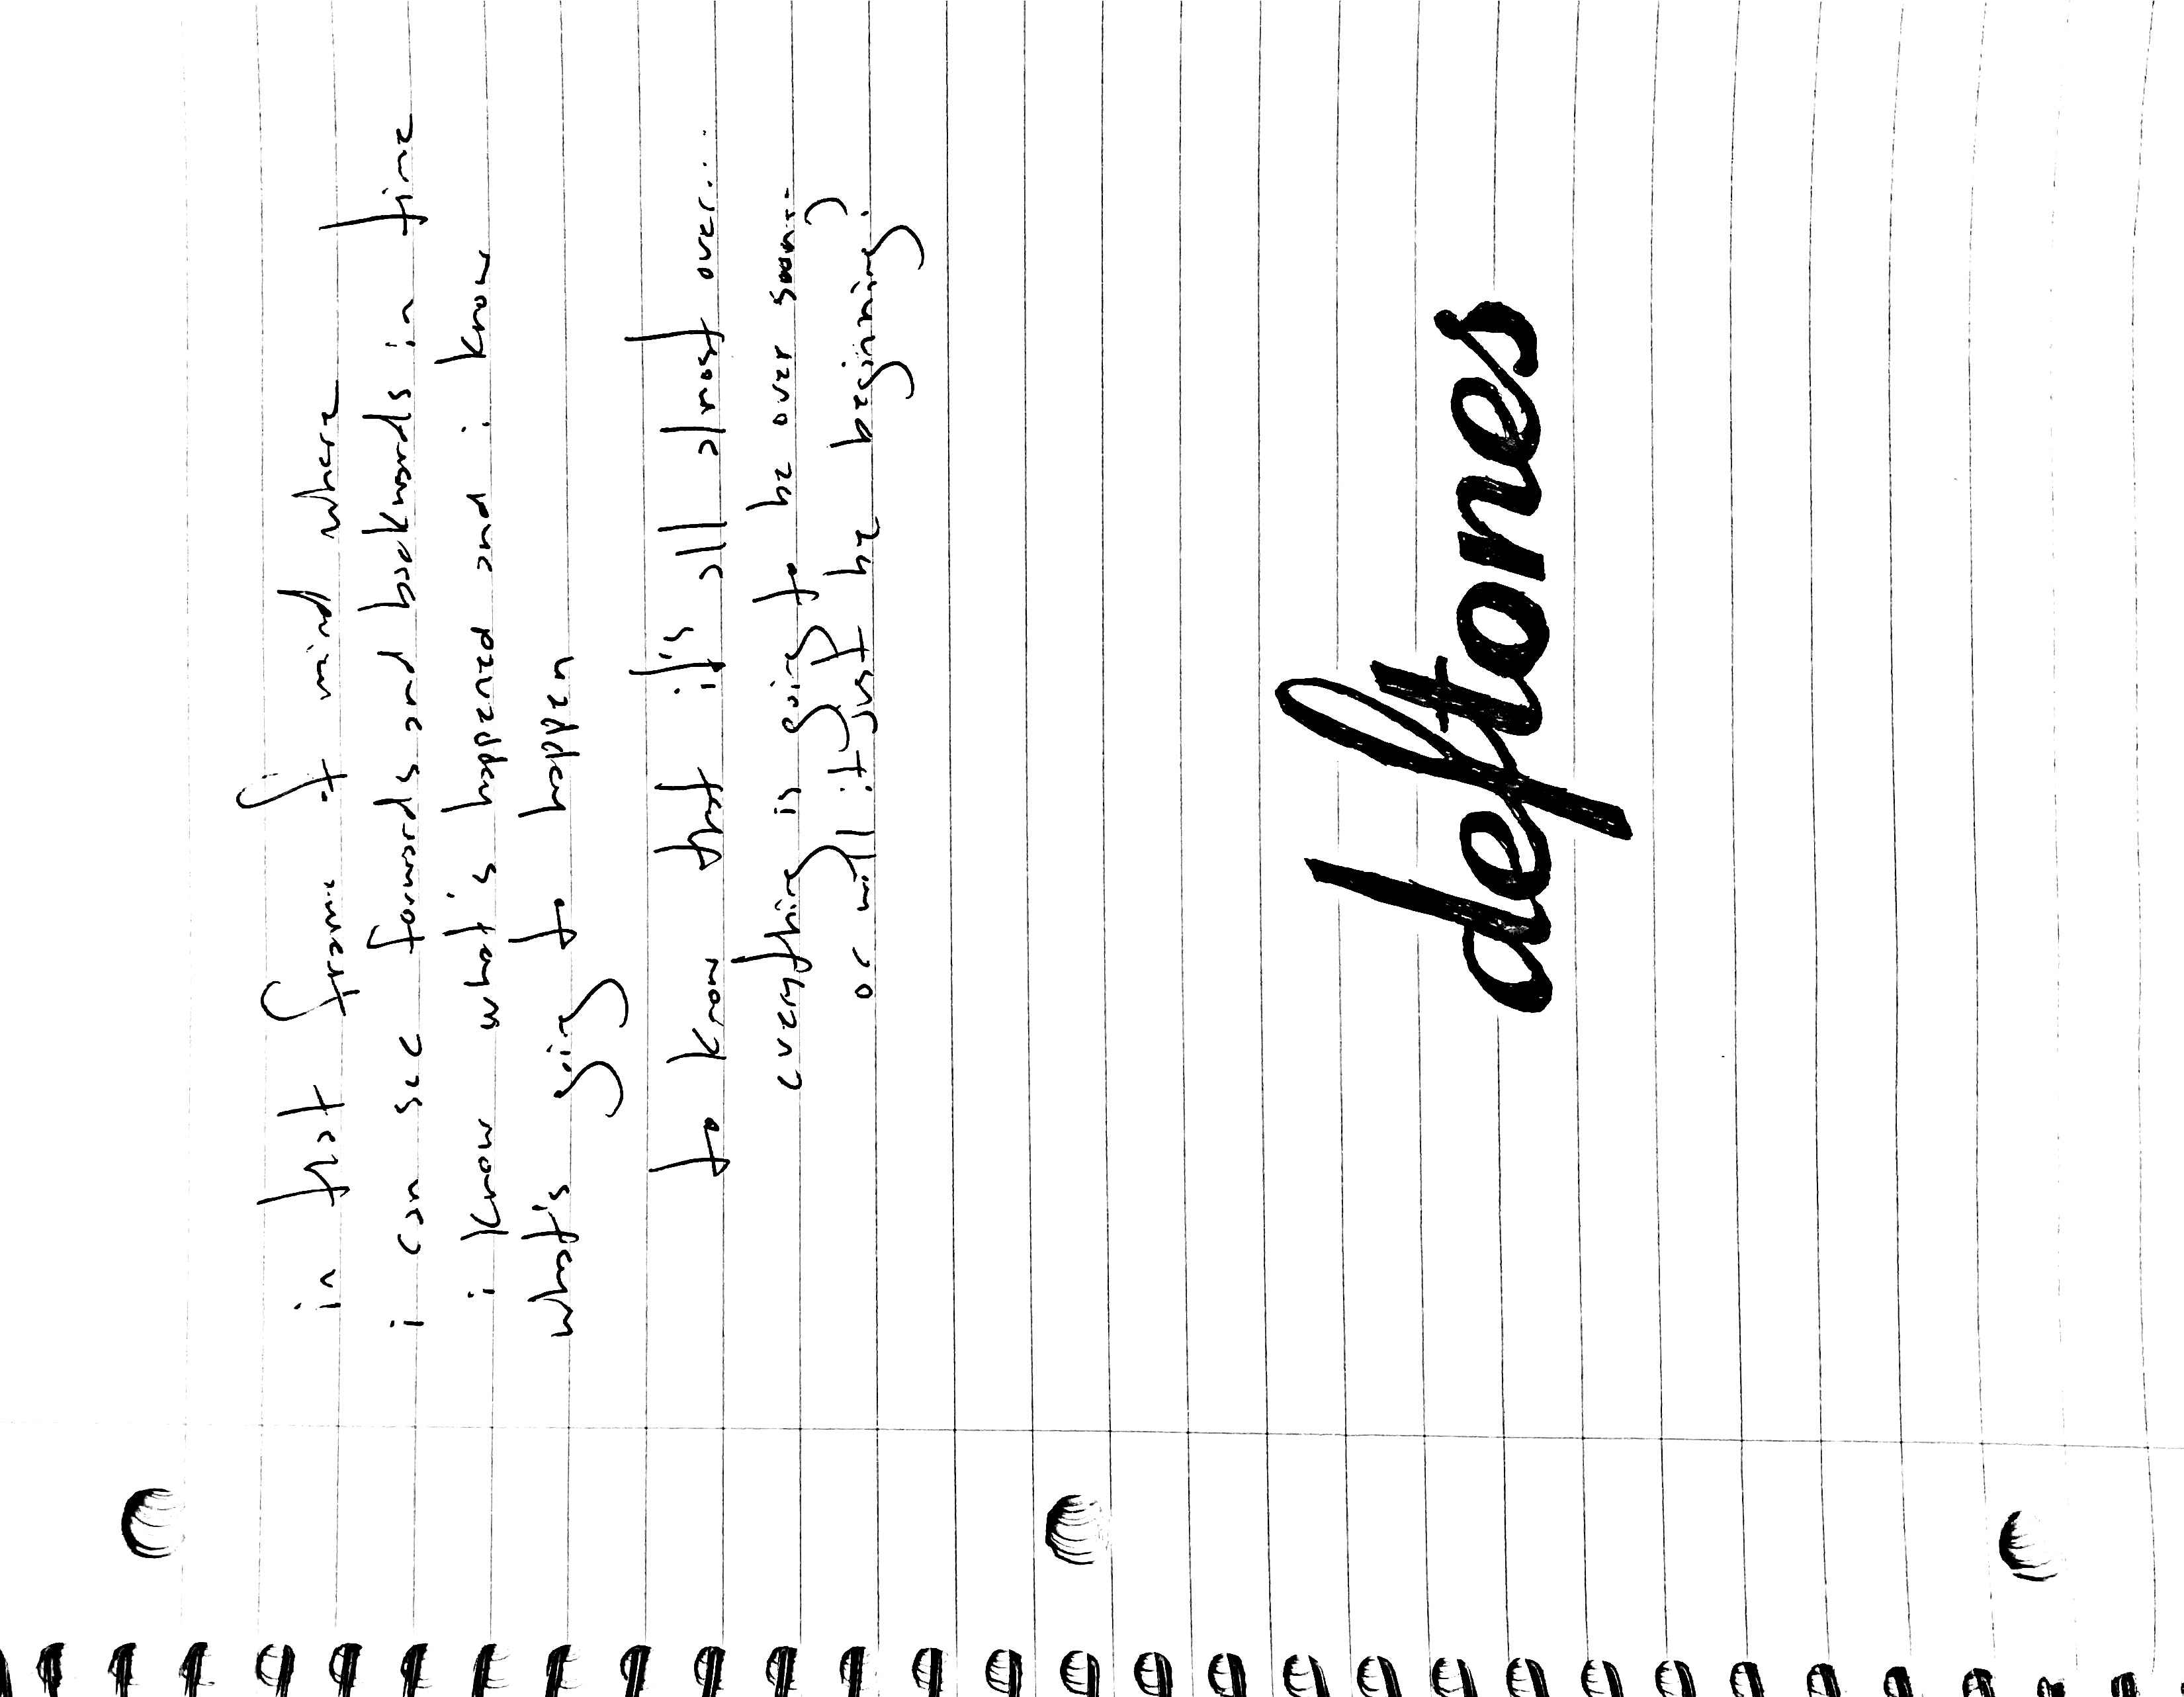 in that frame of mind where
i can see forwards and backwards in time
i know what's happened and i know
what's going to happen
to know that it's all almost over...
everything is going to be over soon...
or will it just be beginning?
deftones